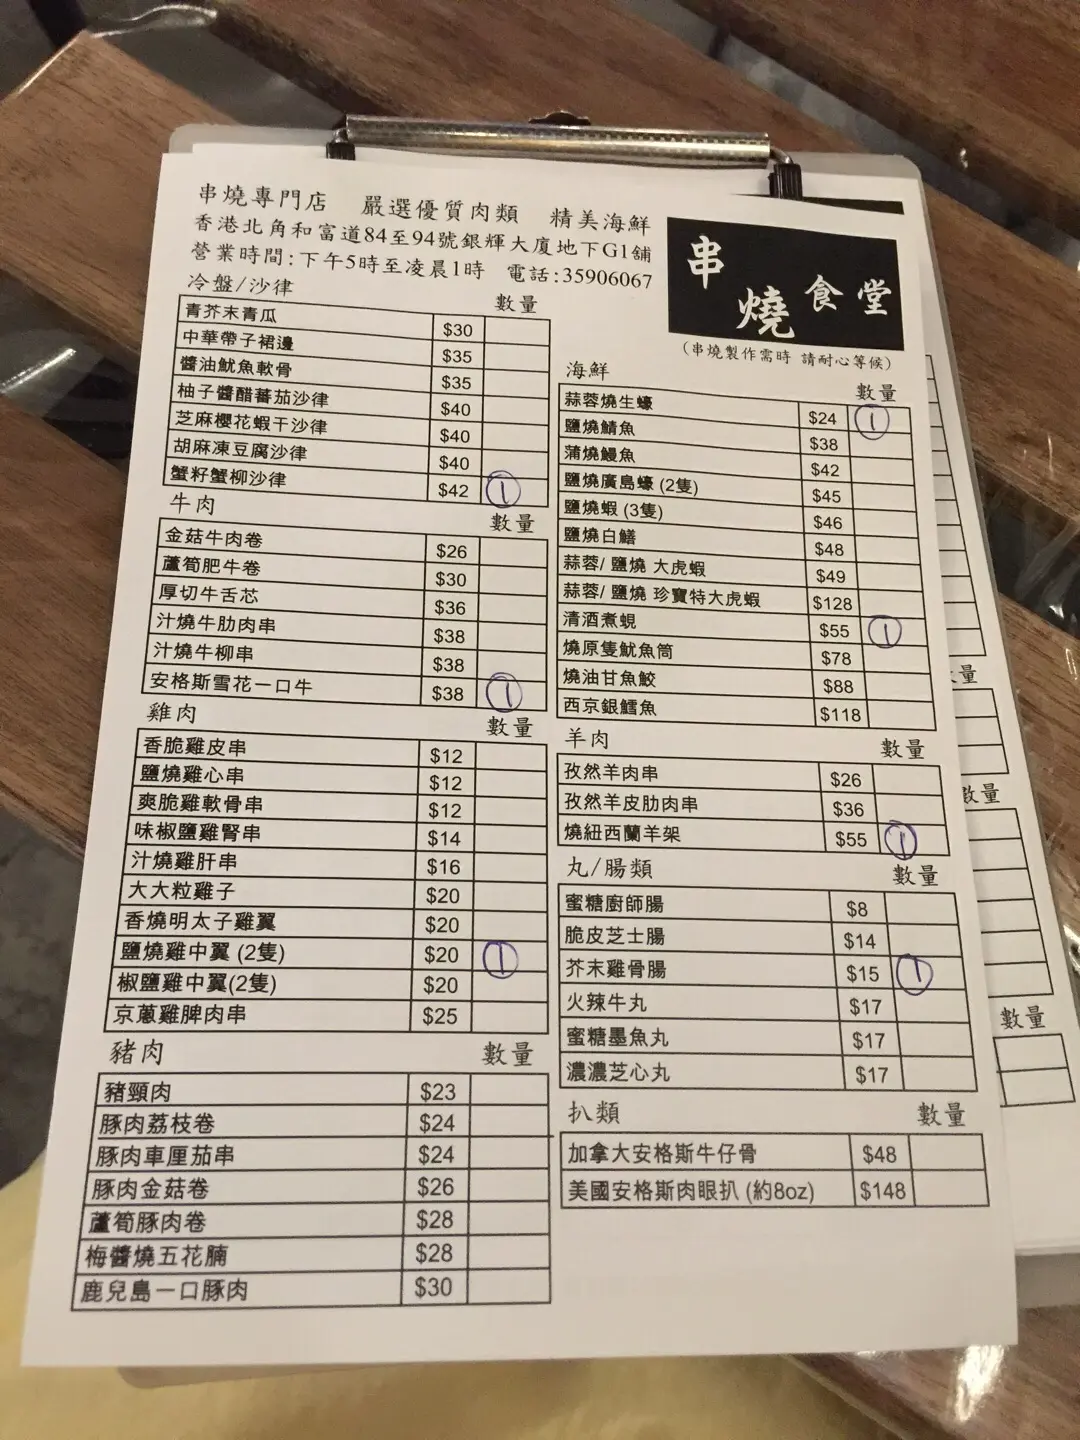 串燒專門店 嚴選優質肉類 精美海鮮
香港北角和富道84至94號銀輝大廈地下G1舖
營業時間:下午5時至凌晨1時 電話:35906067
串燒食堂
(串燒製作需時 請耐心等候)
冷盤/沙律 數量
青芥末青瓜 $30
中華帶子裙邊 $35
醬油魷魚軟骨 $35
柚子醬醋蕃茄沙律 $40
芝麻櫻花蝦干沙律 $40
胡麻凍豆腐沙律 $40
蟹籽蟹柳沙律 $42 1
牛肉 數量
金菇牛肉卷 $26
蘆筍肥牛卷 $30
厚切牛舌芯 $36
汁燒牛肋肉串 $38
汁燒牛柳串 $38
安格斯雪花一口牛 $38 1
雞肉 數量
香脆雞皮串 $12
鹽燒雞心串 $12
爽脆雞軟骨串 $12
味椒鹽雞腎串 $14
汁燒雞肝串 $16
大大粒雞子 $20
香燒明太子雞翼 $20
鹽燒雞中翼 (2隻) $20 1
椒鹽雞中翼(2隻) $20
京蔥雞脾肉串 $25
豬肉 數量
豬頸肉 $23
豚肉荔枝卷 $24
豚肉車厘茄串 $24
豚肉金菇卷 $26
蘆筍豚肉卷 $28
梅醬燒五花腩 $28
鹿兒島一口豚肉 $30
海鮮 數量
蒜蓉燒生蠔 $24 1
鹽燒鯖魚 $38
蒲燒鰻魚 $42
鹽燒廣島蠔 (2隻) $45
鹽燒蝦 (3隻) $46
鹽燒白鱔 $48
蒜蓉/ 鹽燒 大虎蝦 $49
蒜蓉/ 鹽燒 珍寶特大虎蝦 $128
清酒煮蜆 $55 1
燒原隻魷魚筒 $78
燒油甘魚鮫 $88
西京銀鱈魚 $118
羊肉 數量
孜然羊肉串 $26
孜然羊皮肋肉串 $36
燒紐西蘭羊架 $55 1
丸/腸類 數量
蜜糖廚師腸 $8
脆皮芝士腸 $14
芥末雞骨腸 $15 1
火辣牛丸 $17
蜜糖墨魚丸 $17
濃濃芝心丸 $17
扒類 數量
加拿大安格斯牛仔骨 $48
美國安格斯肉眼扒 (約8oz) $148
量
數量
數量